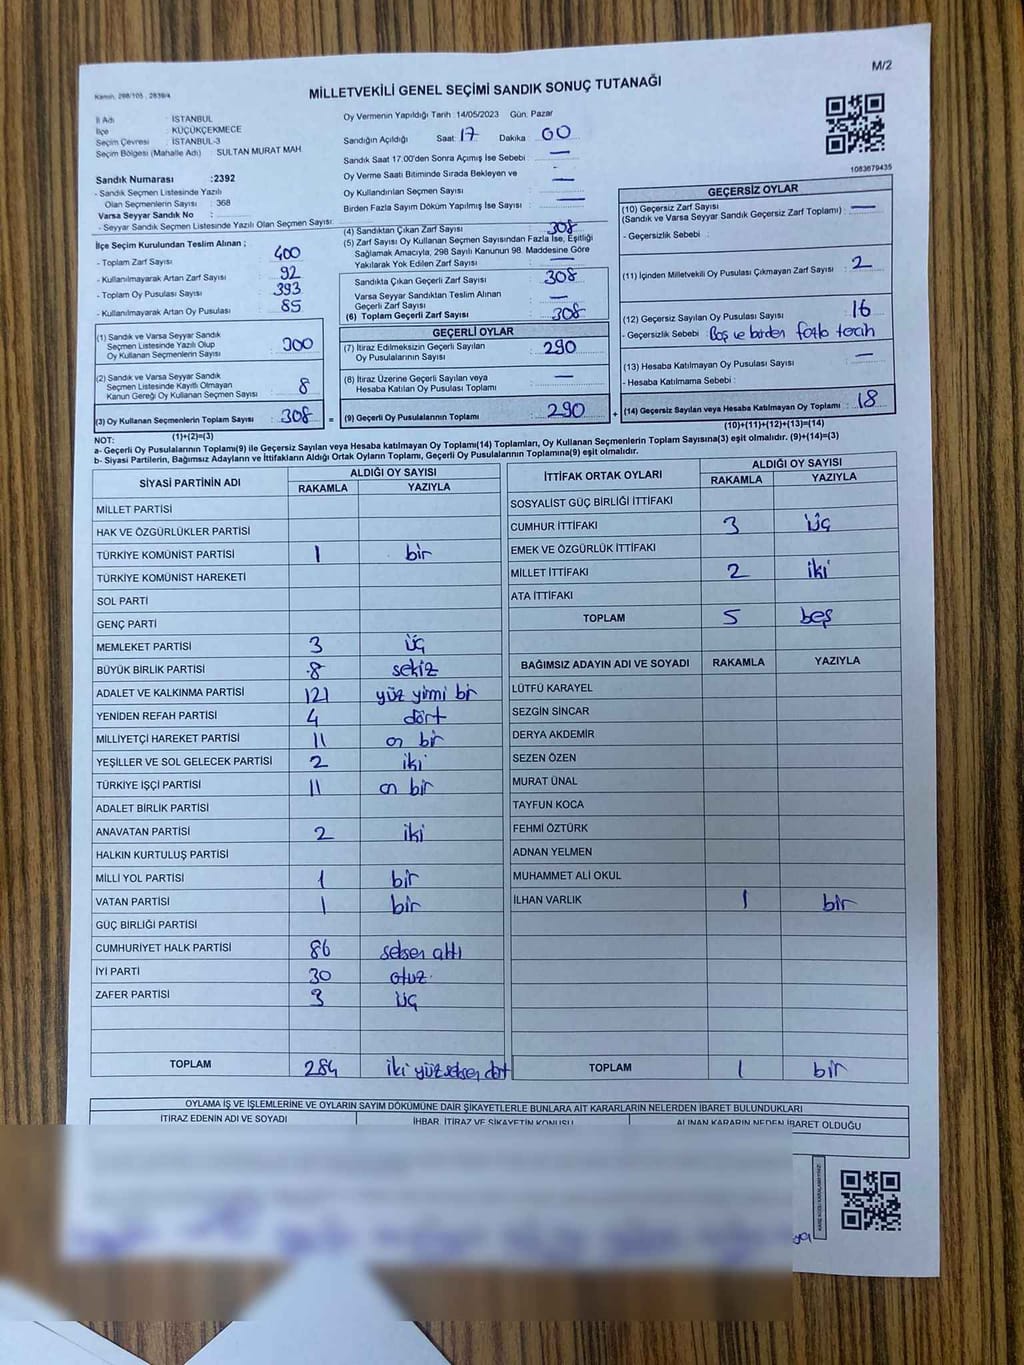 M/2
Kanun, 298/105, 2839/4
MİLLETVEKİLİ GENEL SEÇİMİ SANDIK SONUÇ TUTANAĞI
İl Adı : İSTANBUL
İlçe : KÜÇÜKÇEKMECE
Seçim Çevresi : İSTANBUL-3
Seçim Bölgesi (Mahalle Adı) : SULTAN MURAT MAH.
Sandık Numarası :2392
- Sandık Seçmen Listesinde Yazılı
Olan Seçmenlerin Sayısı : 368
Varsa Seyyar Sandık No :
- Seyyar Sandık Seçmen Listesinde Yazılı Olan Seçmen Sayısı:
Oy Vermenin Yapıldığı Tarih :14/05/2023 Gün: Pazar
Sandığın Açıldığı Saat: 17 Dakika: 00
Sandık Saat 17:00'den Sonra Açımış İse Sebebi : —
Oy Verme Saati Bitiminde Sırada Bekleyen ve
Oy Kullandırılan Seçmen Sayısı : —
Birden Fazla Sayım Döküm Yapılmış İse Sayısı : —
1083679435
İlçe Seçim Kurulundan Teslim Alınan ;
- Toplam Zarf Sayısı : 400
- Kullanılmayarak Artan Zarf Sayısı : 92
- Toplam Oy Pusulası Sayısı : 393
- Kullanılmayarak Artan Oy Pusulası : 85
(1) Sandık ve Varsa Seyyar Sandık
Seçmen Listesinde Yazılı Olup
Oy Kullanan Seçmenlerin Sayısı : 300
(2) Sandık ve Varsa Seyyar Sandık
Seçmen Listesinde Kayıtlı Olmayan
Kanun Gereği Oy Kullanan Seçmen Sayısı : 8
(3) Oy Kullanan Seçmenlerin Toplam Sayısı : 308 =
(1)+(2)=(3)
(4) Sandıktan Çıkan Zarf Sayısı : 308
(5) Zarf Sayısı Oy Kullanan Seçmen Sayısından Fazla İse, Eşitliği
Sağlamak Amacıyla, 298 Sayılı Kanunun 98. Maddesine Göre
Yakılarak Yok Edilen Zarf Sayısı : —
Sandıkta Çıkan Geçerli Zarf Sayısı : 308
Varsa Seyyar Sandıktan Teslim Alınan
Geçerli Zarf Sayısı : —
(6) Toplam Geçerli Zarf Sayısı : 308
GEÇERLİ OYLAR
(7) İtiraz Edilmeksizin Geçerli Sayılan
Oy Pusulalarının Sayısı : 290
(8) İtiraz Üzerine Geçerli Sayılan veya
Hesaba Katılan Oy Pusulası Toplamı : —
(9) Geçerli Oy Pusulalarının Toplamı : 290 +
GEÇERSİZ OYLAR
(10) Geçersiz Zarf Sayısı
(Sandık ve Varsa Seyyar Sandık Geçersiz Zarf Toplamı) : —
- Geçersizlik Sebebi :
(11) İçinden Milletvekili Oy Pusulası Çıkmayan Zarf Sayısı : 2
(12) Geçersiz Sayılan Oy Pusulası Sayısı : 16
- Geçersizlik Sebebi : Boş ve birden fazla tercih
(13) Hesaba Katılmayan Oy Pusulası Sayısı : —
- Hesaba Katılmama Sebebi :
(14) Geçersiz Sayılan veya Hesaba Katılmayan Oy Toplamı : 18
(10)+(11)+(12)+(13)=(14)
NOT:
a- Geçerli Oy Pusulalarının Toplamı(9) ile Geçersiz Sayılan veya Hesaba katılmayan Oy Toplamı(14) Toplamları, Oy Kullanan Seçmenlerin Toplam Sayısına(3) eşit olmalıdır. (9)+(14)=(3)
b- Siyasi Partilerin, Bağımsız Adayların ve İttifakların Aldığı Ortak Oyların Toplamı, Geçerli Oy Pusulalarının Toplamına(9) eşit olmalıdır.
SİYASİ PARTİNİN ADI ALDIĞI OY SAYISI
RAKAMLA YAZIYLA
MİLLET PARTİSİ
HAK VE ÖZGÜRLÜKLER PARTİSİ
TÜRKİYE KOMÜNİST PARTİSİ 1 bir
TÜRKİYE KOMÜNİST HAREKETİ
SOL PARTİ
GENÇ PARTİ
MEMLEKET PARTİSİ 3 üç
BÜYÜK BİRLİK PARTİSİ 8 sekiz
ADALET VE KALKINMA PARTİSİ 121 yüz yimi bir
YENİDEN REFAH PARTİSİ 4 dört
MİLLİYETÇİ HAREKET PARTİSİ 11 on bir
YEŞİLLER VE SOL GELECEK PARTİSİ 2 iki
TÜRKİYE İŞÇİ PARTİSİ 11 on bir
ADALET BİRLİK PARTİSİ
ANAVATAN PARTİSİ 2 iki
HALKIN KURTULUŞ PARTİSİ
MİLLİ YOL PARTİSİ 1 bir
VATAN PARTİSİ 1 bir
GÜÇ BİRLİĞİ PARTİSİ
CUMHURİYET HALK PARTİSİ 86 seksen altı
İYİ PARTİ 30 otuz
ZAFER PARTİSİ 3 üç
TOPLAM 284 iki yüz seksen dört
İTTİFAK ORTAK OYLARI ALDIĞI OY SAYISI
RAKAMLA YAZIYLA
SOSYALİST GÜÇ BİRLİĞİ İTTİFAKI
CUMHUR İTTİFAKI 3 üç
EMEK VE ÖZGÜRLÜK İTTİFAKI
MİLLET İTTİFAKI 2 iki
ATA İTTİFAKI
TOPLAM 5 beş
BAĞIMSIZ ADAYIN ADI VE SOYADI RAKAMLA YAZIYLA
LÜTFÜ KARAYEL
SEZGİN SİNCAR
DERYA AKDEMİR
SEZEN ÖZEN
MURAT ÜNAL
TAYFUN KOCA
FEHMİ ÖZTÜRK
ADNAN YELMEN
MUHAMMET ALİ OKUL
İLHAN VARLIK 1 bir
TOPLAM 1 bir
OYLAMA İŞ VE İŞLEMLERİNE VE OYLARIN SAYIM DÖKÜMÜNE DAİR ŞİKAYETLERLE BUNLARA AİT KARARLARIN NELERDEN İBARET BULUNDUKLARI
İTİRAZ EDENİN ADI VE SOYADI İHBAR, İTİRAZ VE ŞİKAYETİN KONUSU ALINAN KARARIN NEDEN İBARET OLDUĞU